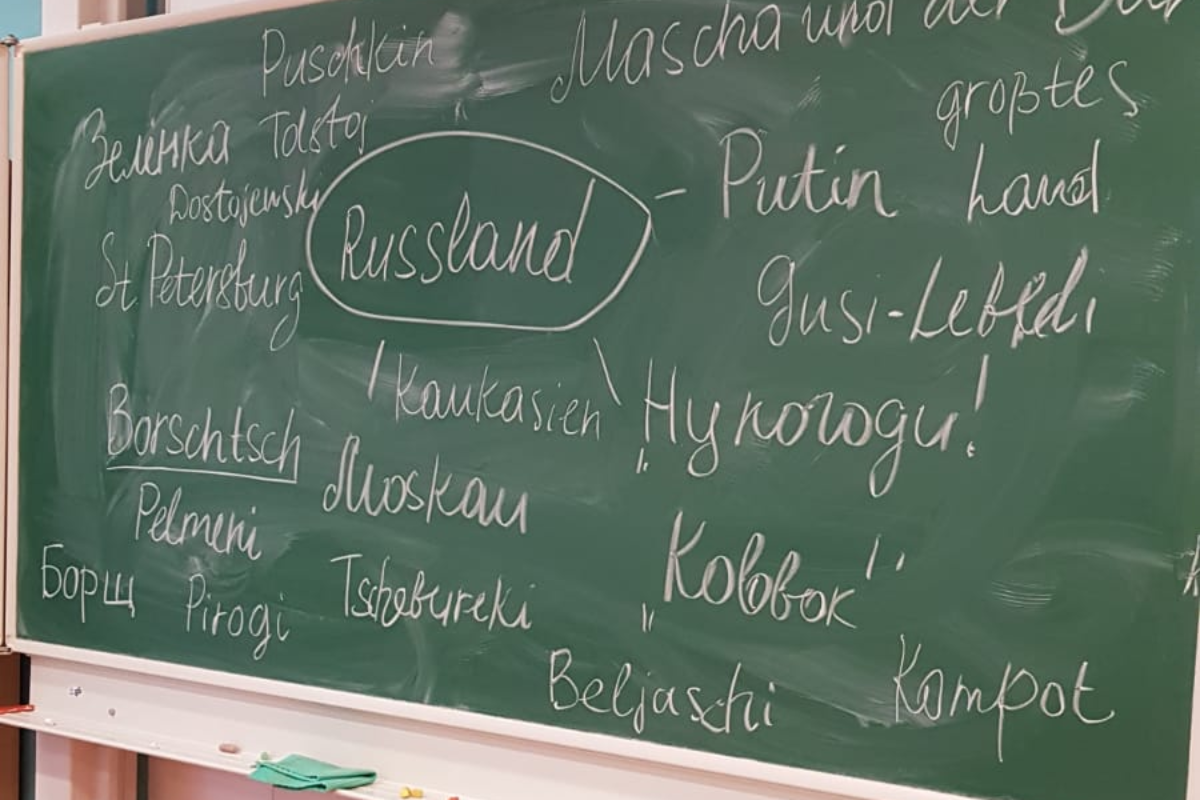 Puschkin
Mascha und der Bär
großtes
Зелёнка
Tolstoj
Putin
Land
Dostojewski
Russland
St. Petersburg
Gusi-Lebedi
Kaukasien
"Ну погоди!
Borschtsch
Moskau
Pelmeni
"Kolobok"
Борщ
Pirogi
Tschebureki
Beljaschi
Kompot